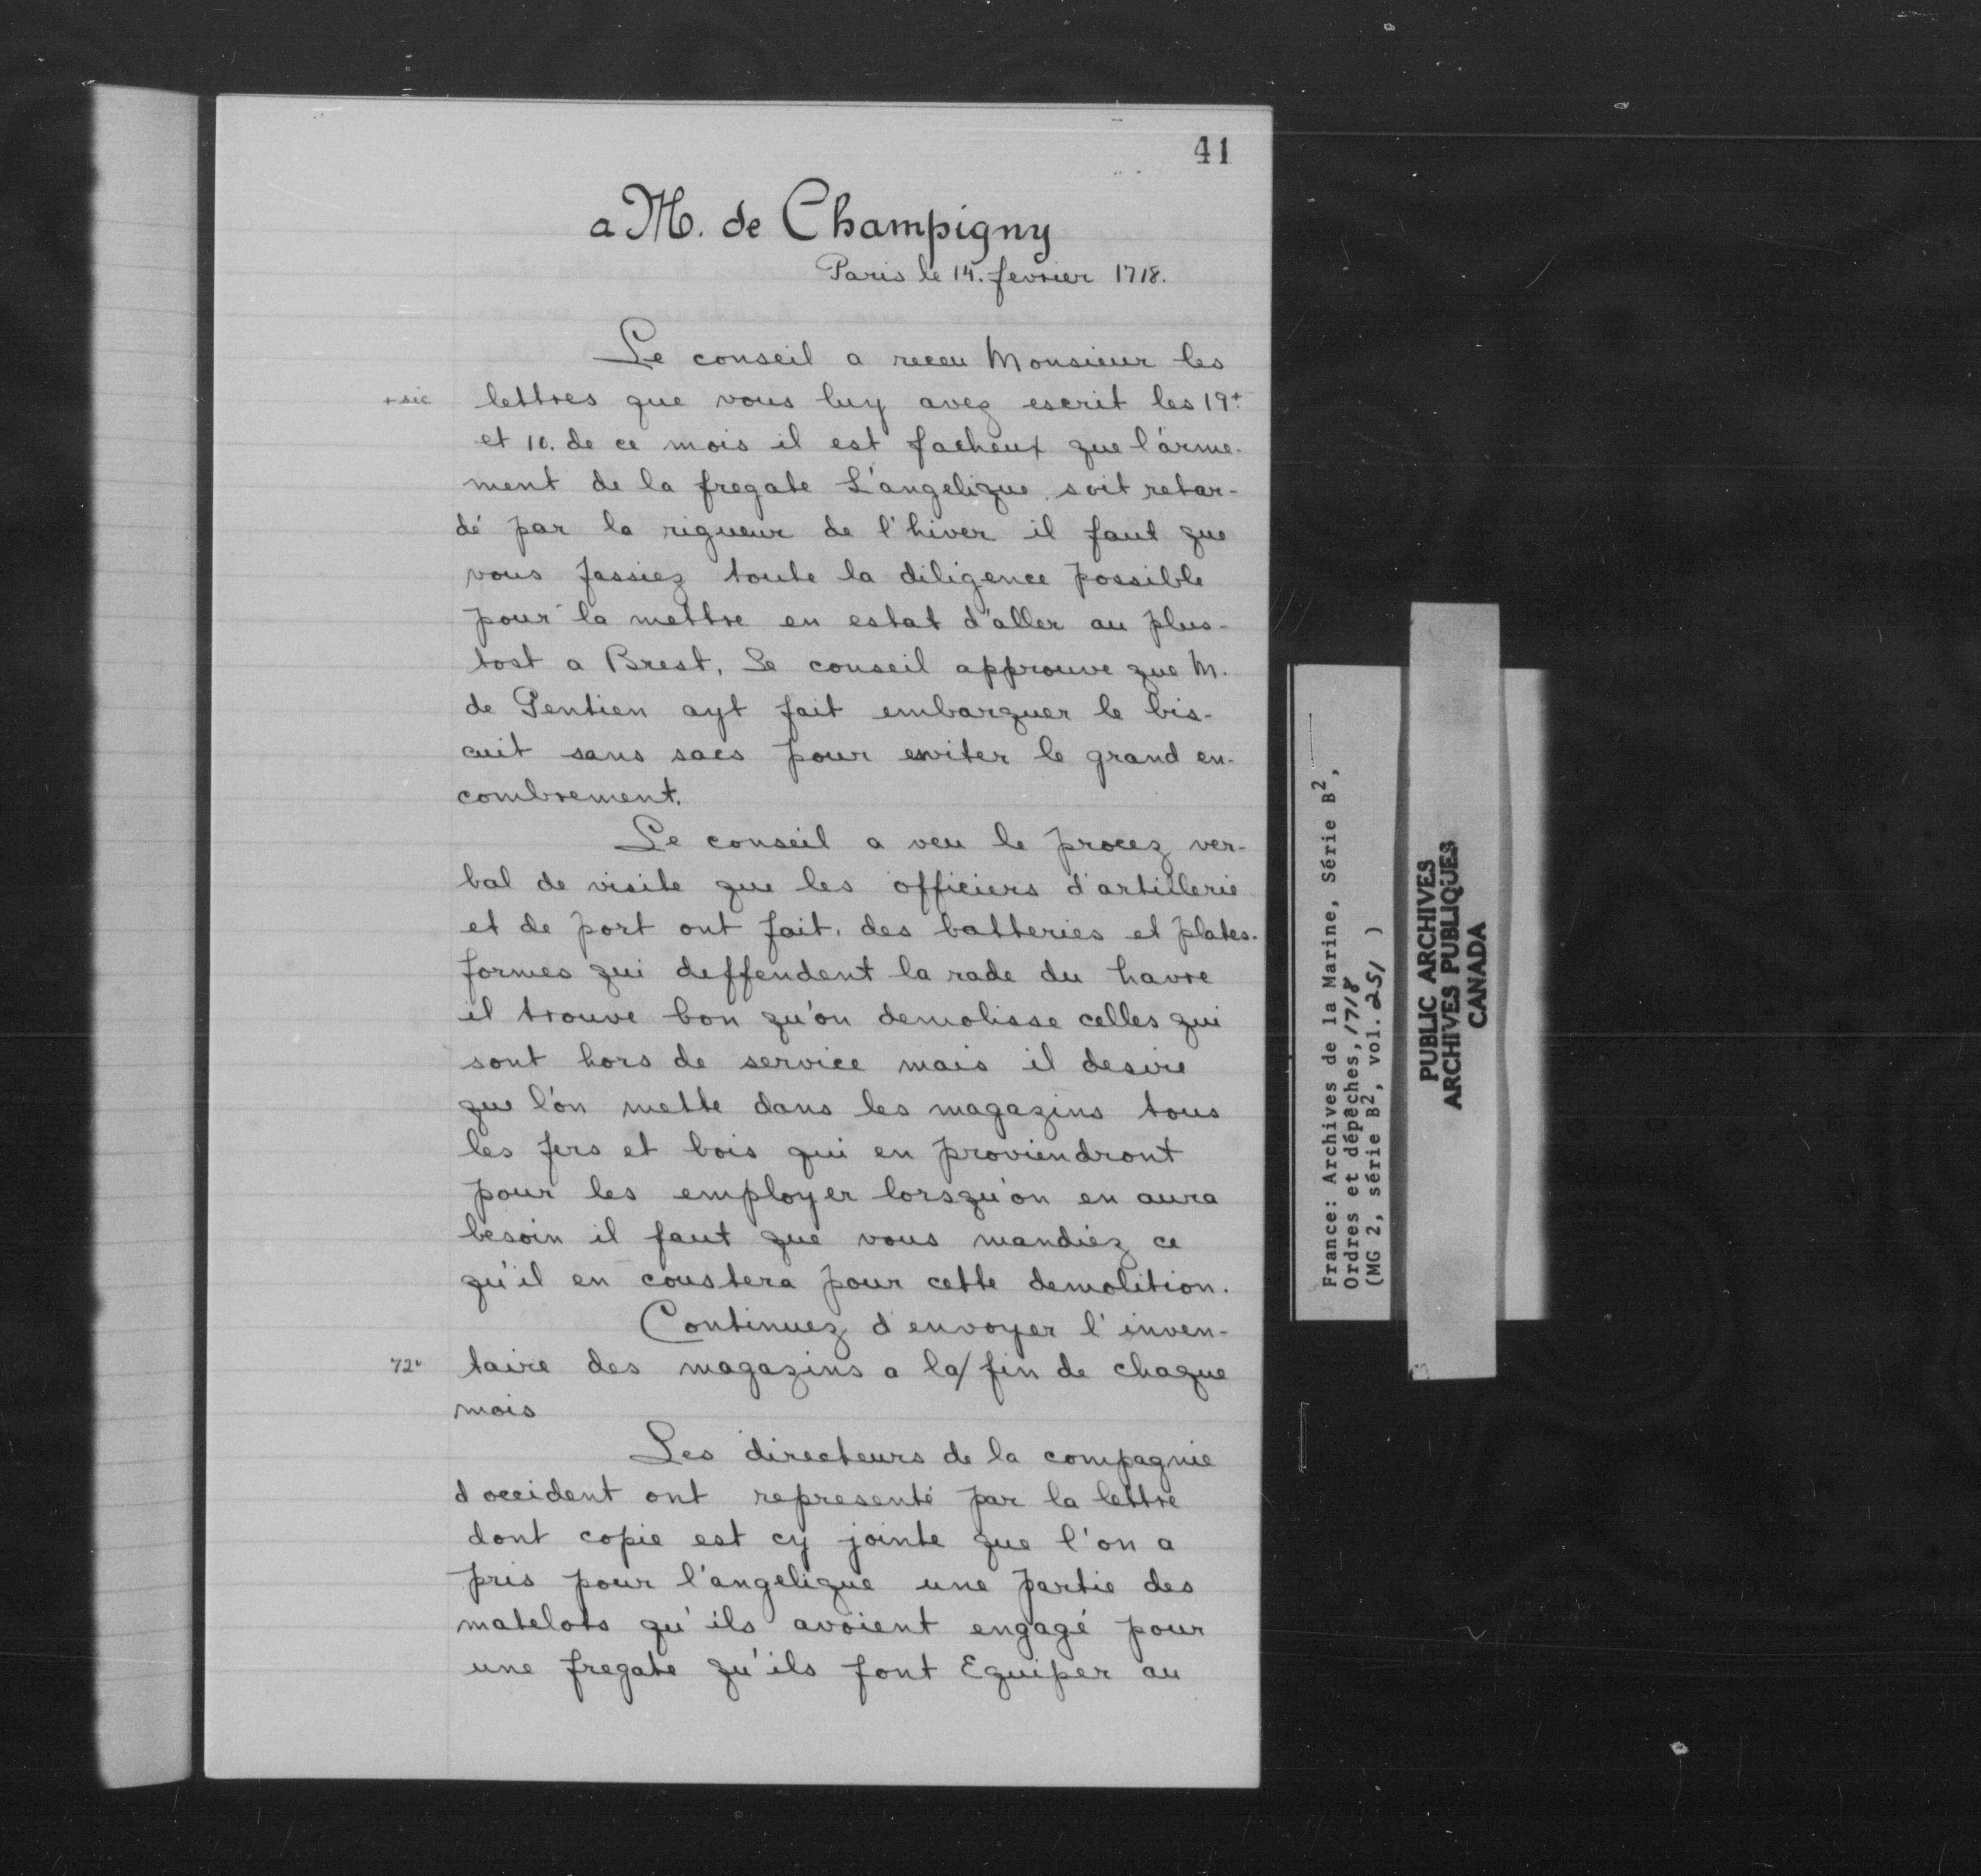 41
a M. de Champigny
Paris le 14. fevrier 1718.
Le conseil a receu Monsieur les
+ sic lettres que vous luy avez escrit les 19+
et 10. de ce mois il est facheux que l'arme-
ment de la fregate L'angelique soit retar-
dé par la rigueur de l'hiver il faut que
vous fassiez toute la diligence possible
pour la mettre en estat d'aller au plus-
tost a Brest, Le conseil approuve que M.
de Pentien ayt fait embarquer le bis-
cuit sans sacs pour eviter le grand en-
combrement.
Le conseil a veu le procez ver-
bal de visite que les officiers d'artillerie
et de port ont fait, des batteries et plates-
formes qui deffendent la rade du havre
il trouve bon qu'on demolisse celles qui
sont hors de service mais il desire
que l'on mette dans les magazins tous
les fers et bois qui en proviendront
pour les employer lorsqu'on en aura
besoin il faut que vous mandiez ce
qu'il en coustera pour cette demolition.
Continuez d'envoyer l'inven-
72v taire des magazins a la/ fin de chaque
mois
Les directeurs de la compagnie
d'occident ont representé par la lettre
dont copie est cy jointe que l'on a
pris pour l'angelique une partie des
matelots qu'ils avoient engagé pour
une fregate qu'ils font Equiper au
France: Archives de la Marine, Série B2,
Ordres et dépêches, 1718
(MG 2, série B2, vol. 251 )
PUBLIC ARCHIVES
ARCHIVES PUBLIQUES
CANADA